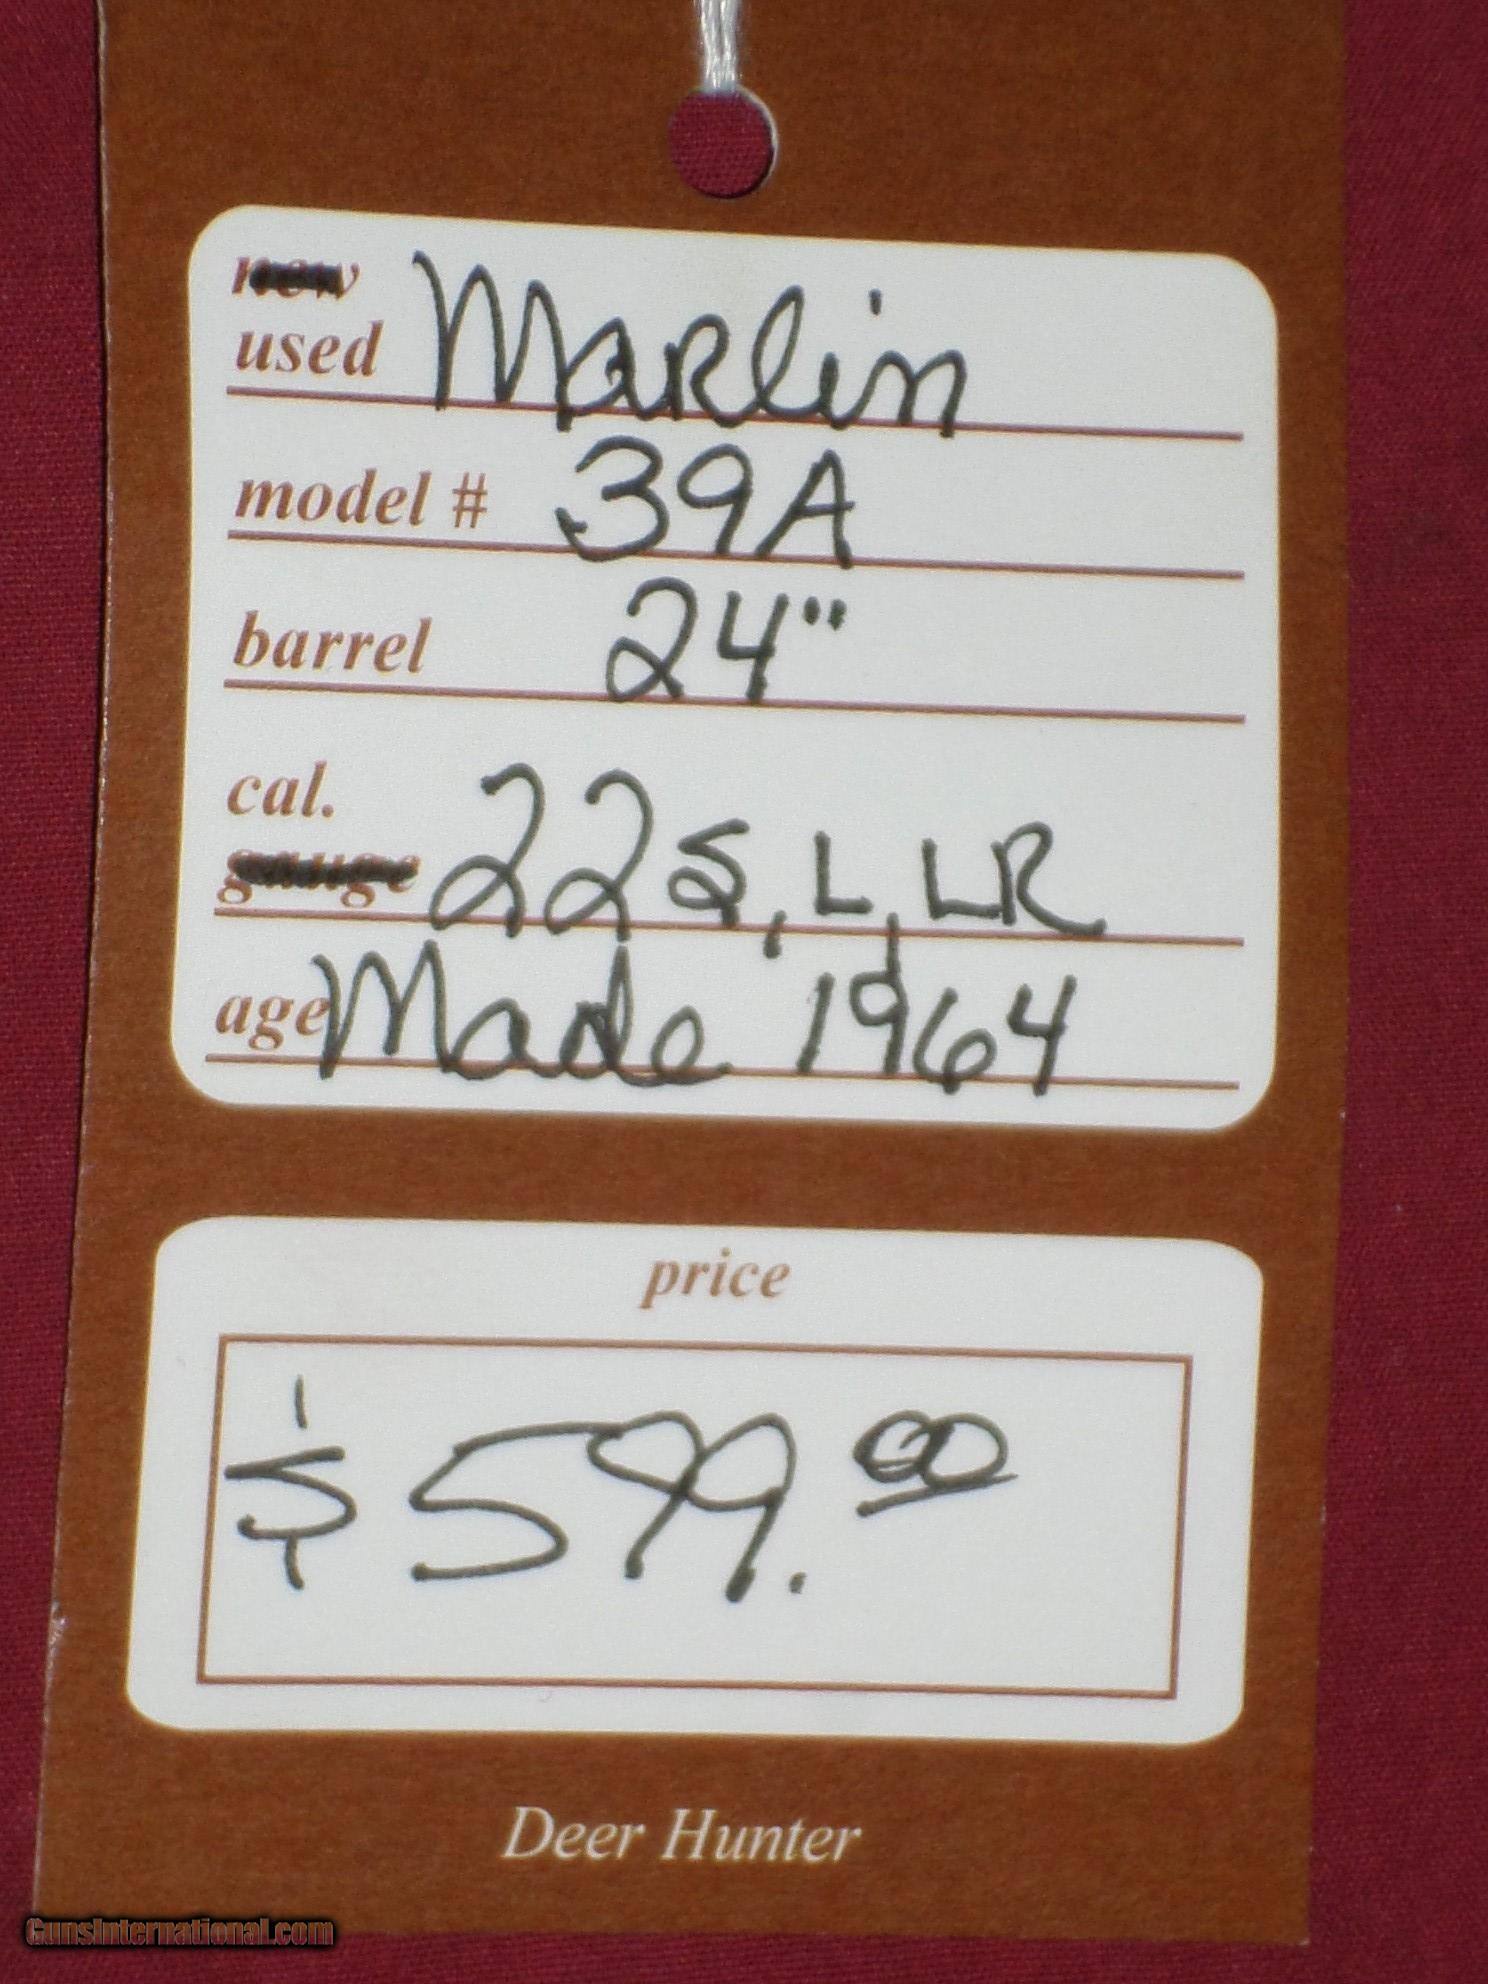 new
used Marlin
model # 39A
barrel 24"
cal.
gauge 22 S, L, LR
age Made 1964
price
$599.00
Deer Hunter
GunsInternational.com